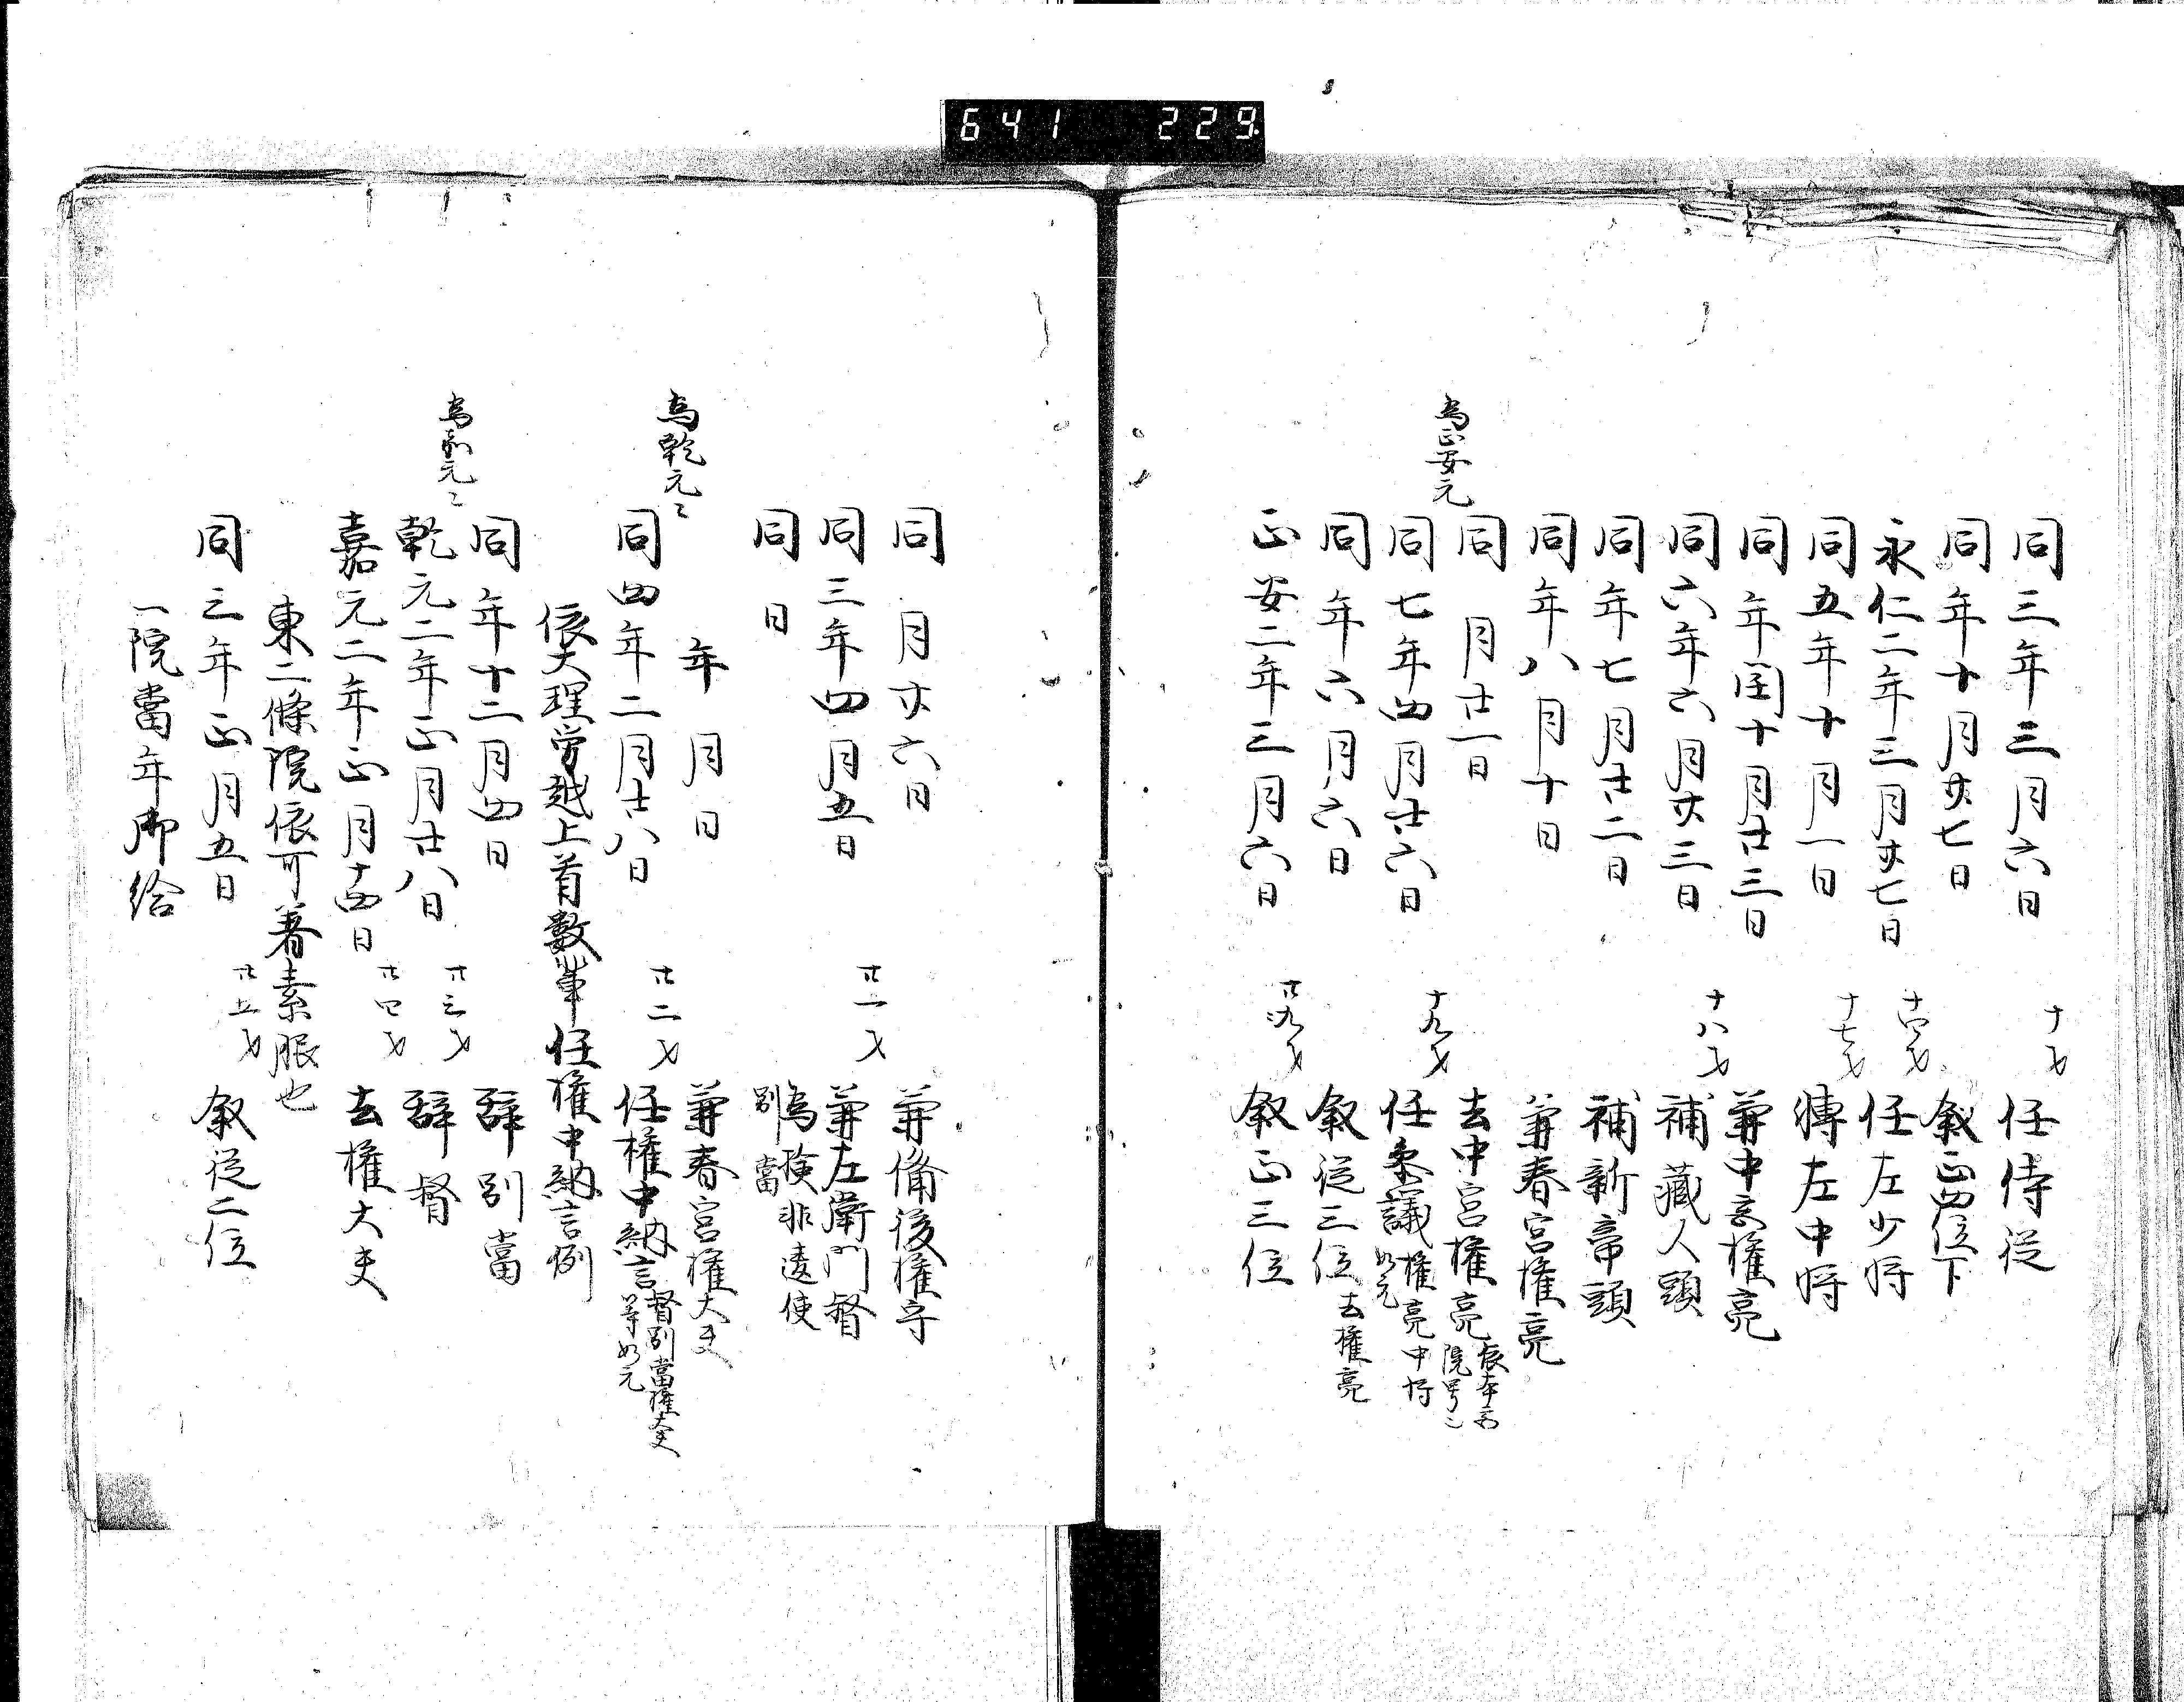 641 229
同三年三月六日 十才 任侍従
同年十月廿七日 叙正四位下
永仁二年三月廿七日 十四才 任左少将
同五年十月一日 十七才 轉左中将
同年閏十月廿三日 兼中宮権亮
同六年六月廿三日 十八才 補藏人頭
同年七月廿二日 補新帝頭
同年八月十日 兼春宮権亮
同月廿一日 去中宮権亮 依本宮院号也
為正安元
同七年四月廿六日 十九才 任参議 権亮中将如元
同年六月六日 叙従三位 去権亮
正安二年三月六日 叙正三位
同月廿六日 兼備後権守
同三年四月五日 廿一才 兼左衛門督
同日 為検非違使別當
年月日 兼春宮権大夫
為乾元ゝ
同四年二月廿八日 廿二才 任権中納言 督別當権大夫等如元
依大理労越上首數輩任権中納言例
同年十二月四日 辞別當
為嘉元ゝ
乾元二年正月廿八日 廿三才 辞督
嘉元二年正月十四日 廿四才 去権大夫
東二條院依可著素服也
同三年正月五日 廿五才 叙従二位
一院當年御給